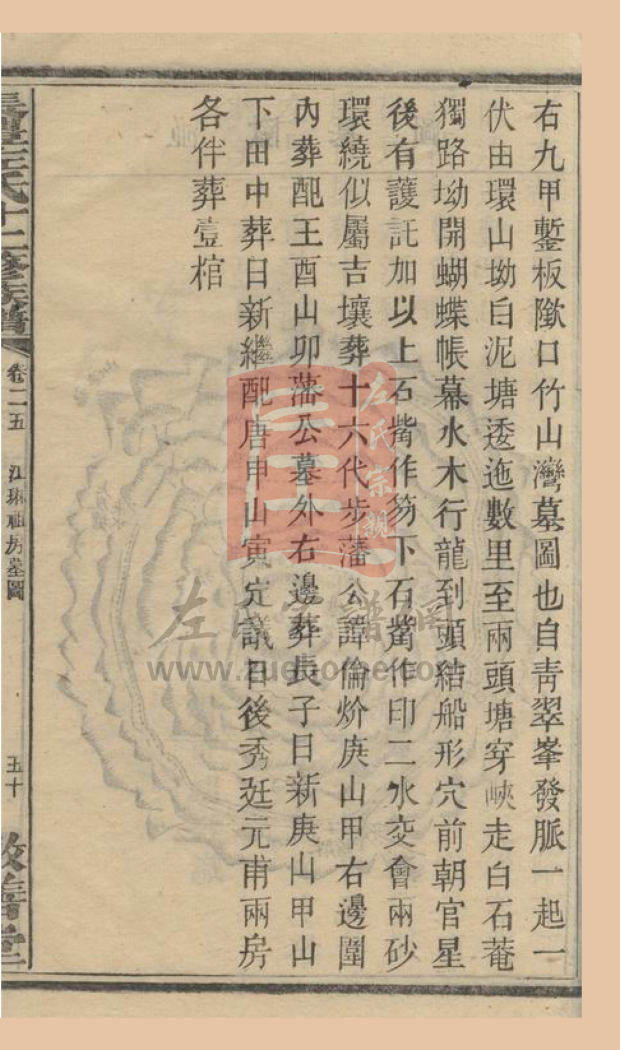 右九甲鏨板隞口竹山灣墓圖也自靑翠峯發脈一起一
伏由環山坳白泥塘逶迤數里至兩頭塘穿峽走白石菴
獨路坳開蝴蝶帳幕水木行龍到頭結船形穴前朝官星
後有護託加以上石嘴作笏下石嘴作印二水交會兩砂
環繞似屬吉壤葬十六代步藩公諱倫炌庚山甲右邊圍
內葬配王酉山卯藩公墓外右邊葬長子日新庚山甲山
下田中葬日新繼配唐申山寅定議日後秀廷元甫兩房
各伴葬壹棺
左氏十二修族譜
卷二五
江琳祖房墓圖
五十
敦善堂
左氏宗親
左氏家譜網
www.zuehome.co